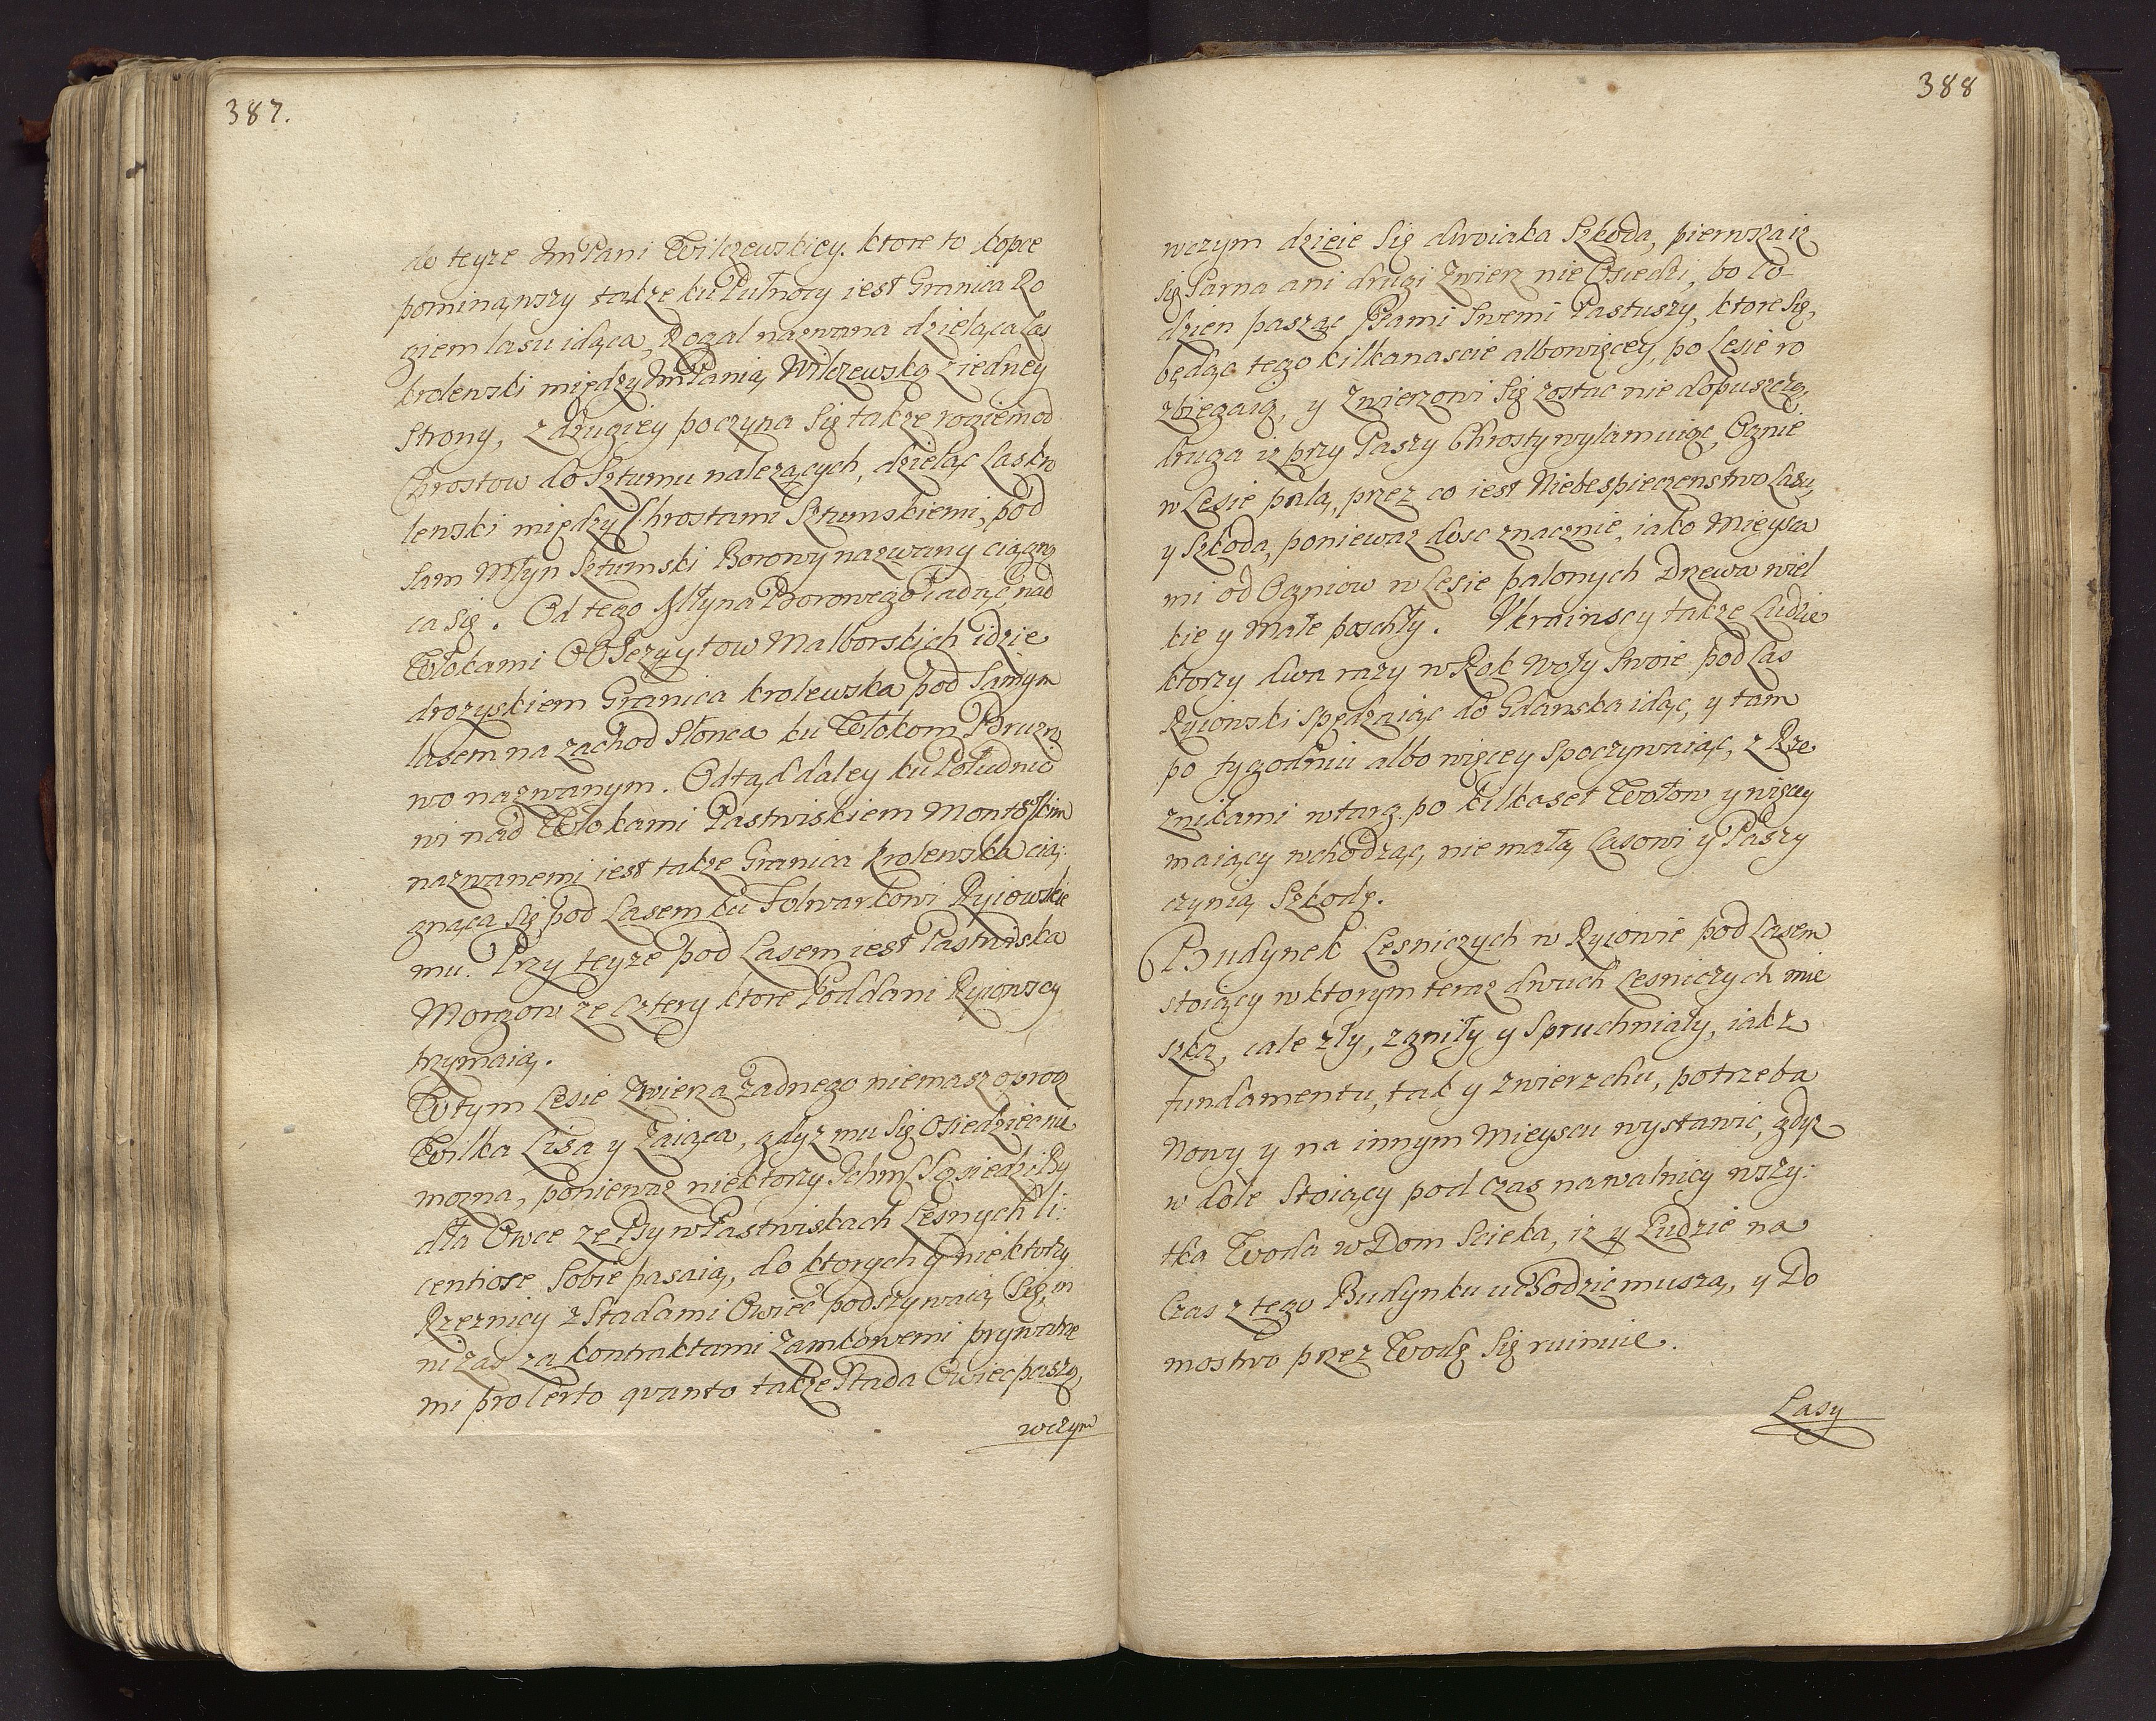 387.
do teyze JmPani Wilczewskiey. ktore to kopce
pominąwszy także ku Pułnocy iest Granica Ro
giem lasu idąca, Rogal nazwana dzieląca Las
krolewski między JmPanią Wilczewską z iedney
Strony, z drugiey poczyna Się także rogiem od
Chrostow do Sztumu należących, dzieląc Las kro
lewski między Chrostami Sztumskiemi, pod
Sam Młyn Sztumski Borowy nazwany ciągną
ca Się. Od tego Młyna Borowego iadąc, nad
Włokami OO Jezuytow Malborskich idzie
drożyskiem Granica krolewska pod Samym
lasem na zachod Słonca ku Włokom Pdruzno
wo nazwanym. Odtąd daley ku Południo
wi nad Włokami Pastwiskiem Montoskim
nazwanemi iest także Granica Krolewska cią:
gnąca Się pod Lasem ku Folwarkowi Ryiowskie
mu. Przy teyze pod Lasem iest Pastwiska
Morgow ze cztery ktore Poddani Ryiowscy
trzymaią.
W tym Lesie Zwierza żadnego niemasz oprocz
Wilka Lisa y Zaiąca, gdyz mu Się Osiedziec nie
mozna, poniewaz niektorzy Ichmsc Sąsiedzi By
dła Owce ze Psy w Pastwiskach Lesnych li:
centiose Sobie pasaią, do ktorych y niektorzy
Rzeznicy z Stadami Owiec podszywaią Się, in
ni zas za kontraktami Zamkowemi prywatne
mi pro certo quanto także Stada Owiec paszą,
wczym
388
wczym dzieie Się dwoiaka Szkoda, pierwsza iz
Się Sarna ani drugi Zwierz nie Osiedzi, bo Co
dzien pasząc Psami Swemi Pastuszy, ktore Się,
będąc tego kilkanascie albo więcey, po Lesie ro
zbiegaią, y Zwierzowi Się zostac nie dopuszczą,
druga iz przy Paszy Chrosty wyłamuiąc, Ognie
w Lesie palą, przez co iest Niebespieczenstwo Lasu,
y Szkoda, poniewaz dosc znacznie, iako Mieysca
mi od Ogniow w Lesie palonych Drzewa wiel
kie y Małe poschły. Ukrainscy także Ludzie
ktorzy dwa razy w Rok Woły Swoie pod Las
Ryiowski spędzaiąc do Gdanska idąc, y tam
po tygodniu albo więcey Spoczywaiąc, z Rze
znikami w targ po kilkaset Wołow y więcey
maiący wchodząc, nie małą Lasowi y Paszy
czynią Szkodę.
Budynek Lesniczych w Ryiowie pod Lasem
stoiący w ktorym teraz dwuch Lesniczych mie
szka, cale zły, zgniły y Spruchniały, iak z
fundamentu, tak y zwierzchu, potrzeba
Nowy y na innym Mieyscu wystawic, gdyz
w dole Stoiący pod czas nawalnicy wszy:
tka Woda w Dom Scieka, iz y Ludzie na
Czas z tego Budynku uchodzic muszą, y Do
mostwo przez Wodę Się ruinuie.
Lasy